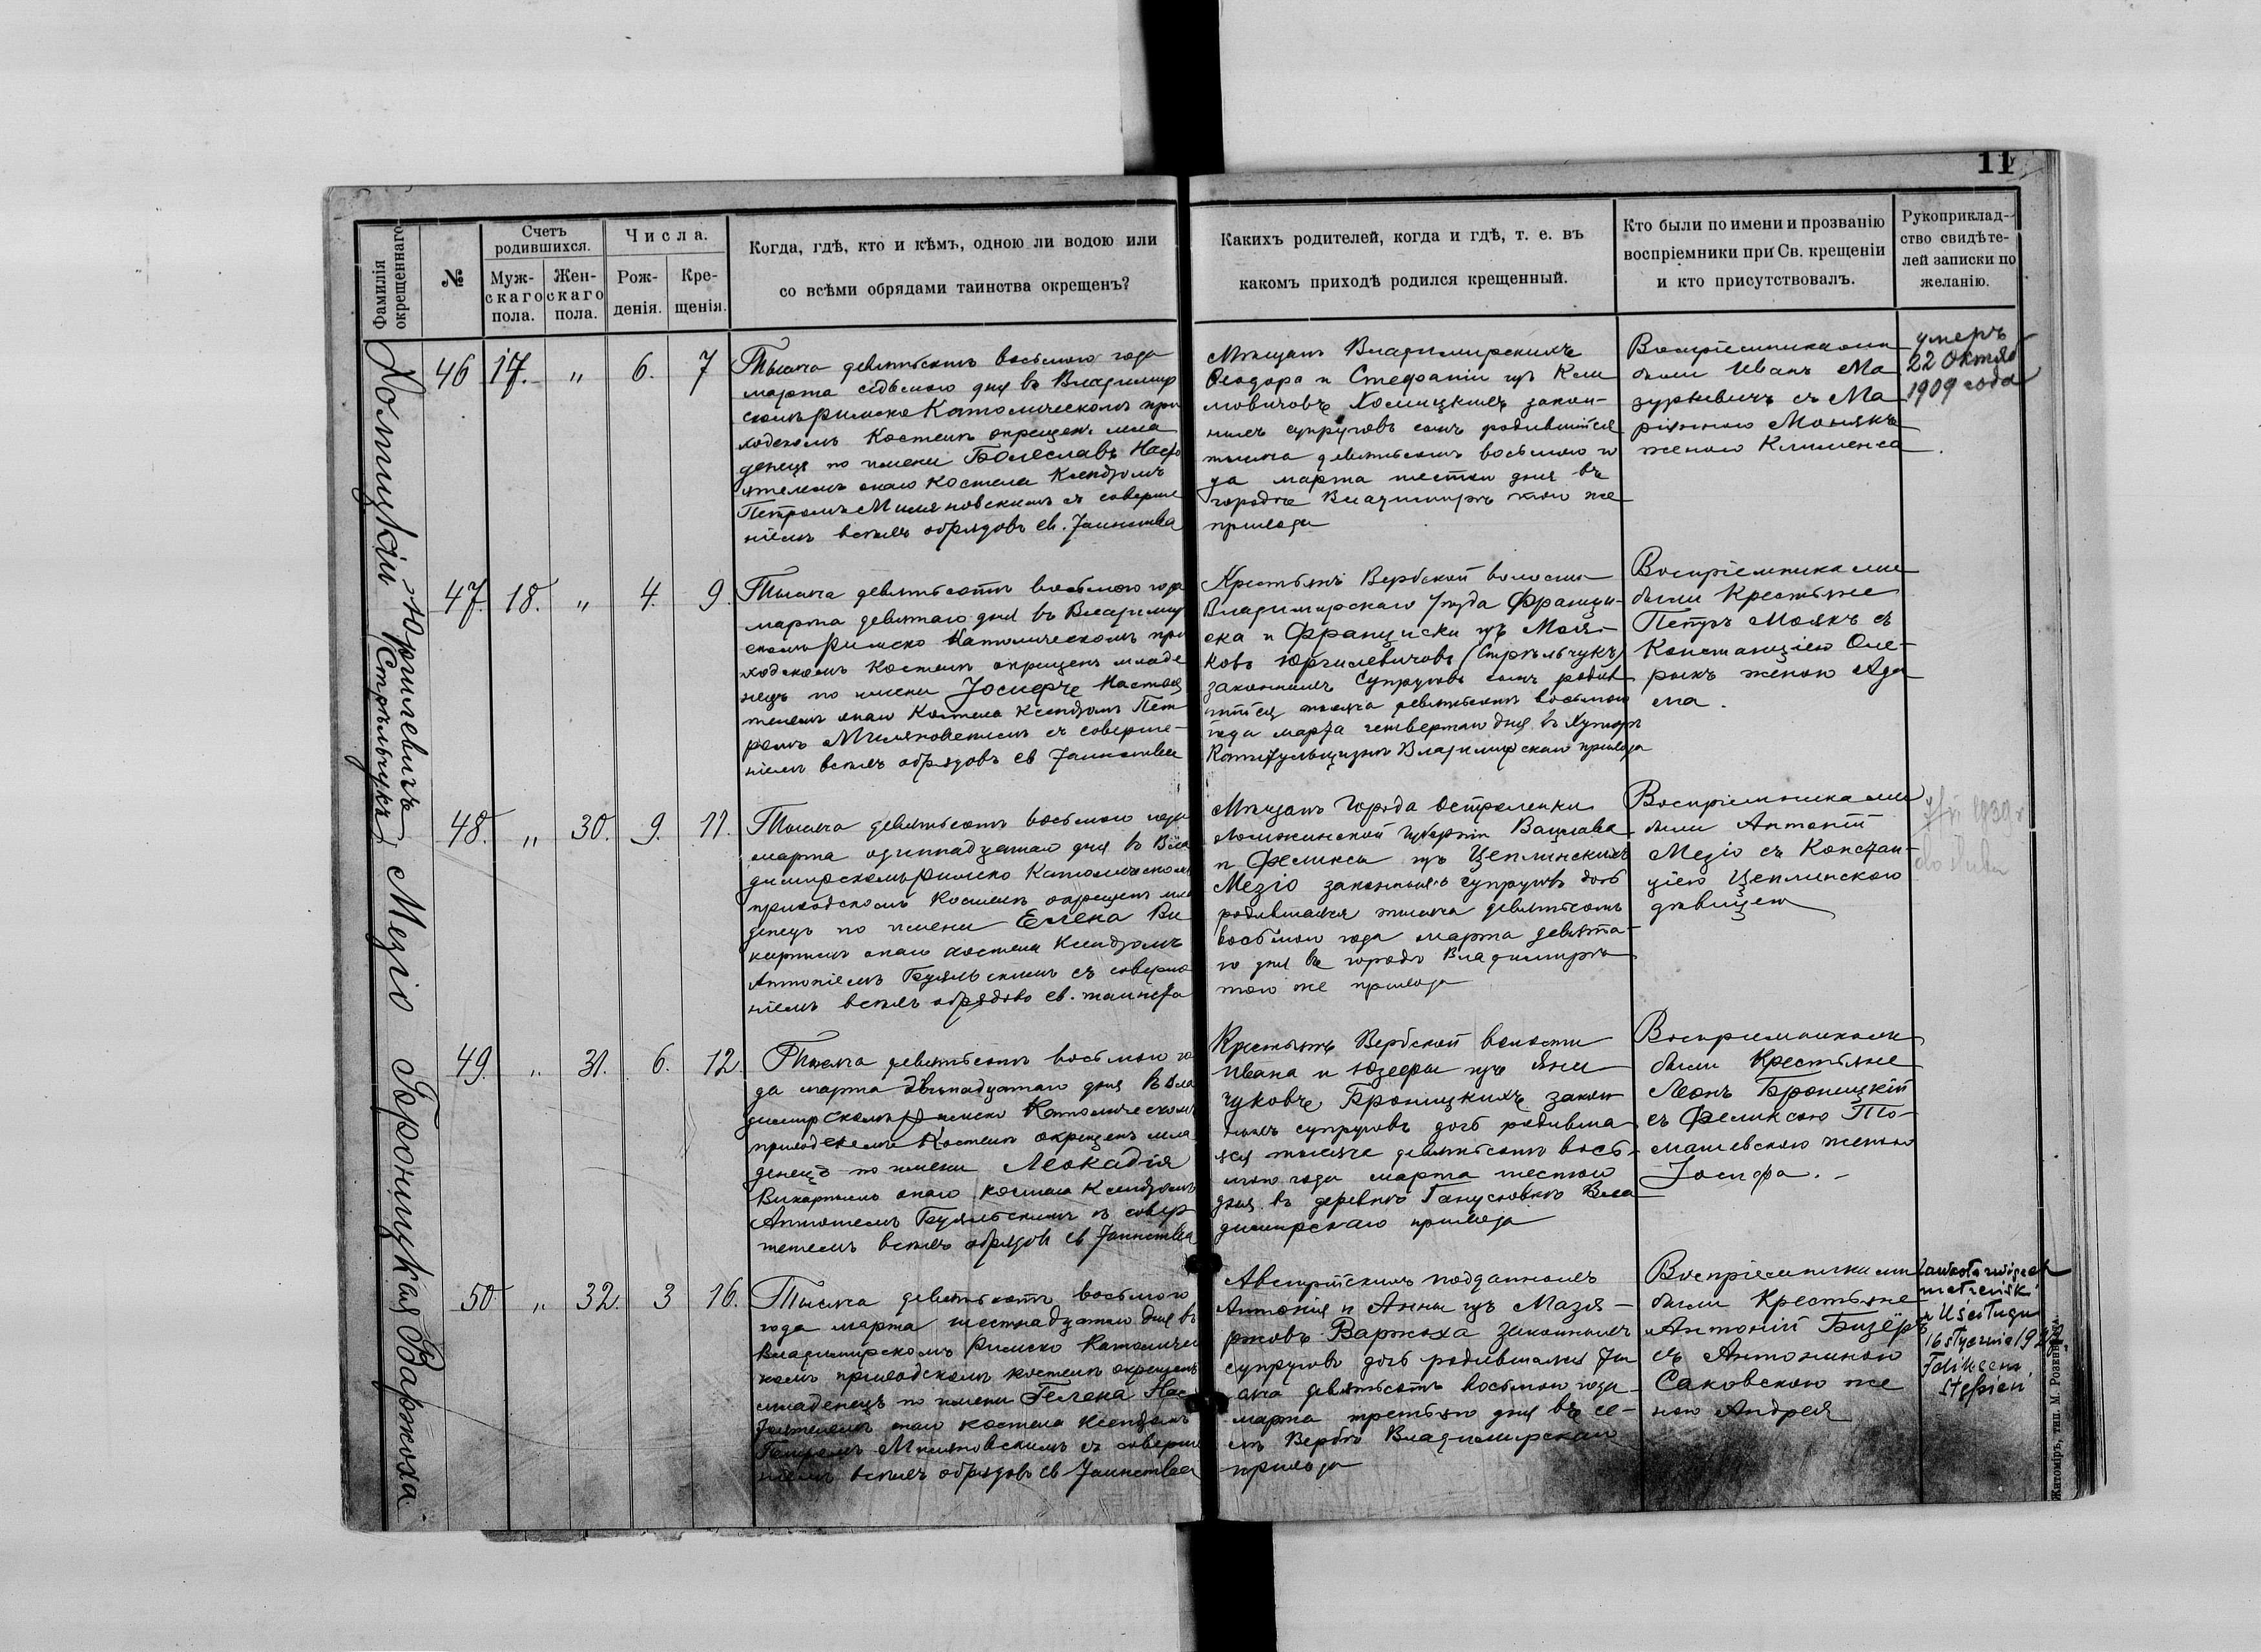 11
Фамилія окрещеннаго
№
Счетъ родившихся.
Муж-скаго пола.
Жен-скаго пола.
Числа.
Рож-денія.
Кре-щенія.
Когда, гдѣ, кто и кѣмъ, одною ли водою или
со всѣми обрядами таинства окрещенъ?
Какихъ родителей, когда и гдѣ, т. е. въ
какомъ приходѣ родился крещенный.
Кто были по имени и прозванію
воспріемники при Св. крещеніи
и кто присутствовалъ.
Рукоприклад-
ство свидѣте-
лей записки по
желанію.
Хомицкій
46 17. „ 6. 7
Тысяча девятьсотъ восьмого года
марта седьмого дня въ Владимир
скомъ римско Католическомъ при
ходскомъ Костелѣ окрещенъ мла
денецъ по имени Болеславъ Насто
ятелемъ онаго Костела Ксендзомъ
Петромъ Миляновскимъ съ соверше
ніемъ всѣхъ обрядовъ св. Таинства
Мѣщанъ Владимирскихъ
Ѳеодора и Стефаніи изъ Кли
мовичовъ Хомицкихъ закон-
ныхъ супруговъ сынъ родившійся
тысяча девятьсотъ восьмого го
да марта шестого дня въ
городѣ Владимирѣ того же
прихода
Воспріемниками
были Иванъ Ма
зуркевичъ съ Ма
ріянною Монякъ
женою Климента
умеръ
22 Октяб
1909 года
Юргилевичъ
(Стрѣльчукъ)
47. 18. „ 4. 9.
Тысяча девятьсотъ восьмого года
марта девятаго дня въ Владимир
скомъ Римско Католическомъ при
ходскомъ Костелѣ окрещенъ младе
нецъ по имени Іосифъ Настоя
телемъ онаго Костела Ксендзомъ Пет
ромъ Миляновскимъ съ соверше-
ніемъ всѣхъ обрядовъ св Таинства
Крестьянъ Вербской волости
Владимирскаго уѣзда Франци-
ска и Франциски изъ Моля-
ковъ Юргилевичовъ (Стрѣльчукъ)
законныхъ Супруговъ сынъ родив
шійся тысяча девятьсотъ восьмого
года марта четвертаго дня въ Хуторѣ
Владимирскаго прихода
Воспріемниками
были Крестьяне
Петръ Моякъ съ
Констанціею Оле-
рыкъ женою Ада
ма.
Мезіо
48. „ 30. 9. 11.
Тысяча девятьсотъ восьмого года
марта одиннадцатаго дня въ Вла
димирскомъ Римско Католическомъ
приходскомъ Костелѣ окрещенъ мла
денецъ по имени Елена Ви
каріемъ онаго костела Ксендзомъ
Антоніемъ Буяльскимъ съ соверше
ніемъ всѣхъ обрядовъ св. таинства
Мѣщанъ Города Остроленки
Ломжинской Губерніи Вацлава
и Феликсы изъ Цеплинскихъ
Мезіо законныхъ супруговъ дочь
родившаяся тысяча девятьсотъ
восьмого года марта девята-
го дня въ городѣ Владимирѣ
того же прихода
Воспріемниками
были Антоній
Мезіо съ Констан-
ціею Цеплинскою
дѣвицею
Броницкая
49. „ 31. 6. 12.
Тысяча девятьсотъ восьмого го
да марта двѣнадцатаго дня въ Вла
димирскомъ Римско Католическомъ
приходскомъ Костелѣ окрещенъ мла
денецъ по имени Леокадія
Викаріемъ онаго костела Ксендзомъ
Антоніемъ Буяльскимъ съ совер
шеніемъ всѣхъ обрядовъ св Таинства
Крестьянъ Вербской волости
Ивана и Юзефы изъ Яни
чуковъ Броницкихъ закон
ныхъ супруговъ дочь родивша
яся тысяча девятьсотъ вось-
мого года марта шестого
дня въ деревнѣ Ганусовкѣ Вла
димирскаго прихода
Воспріемниками
были Крестьяне
Леонъ Броницкій
съ Феликсою То-
машевскою женою
Іосифа.
Варжоха
50 „ 32. 3 16.
Тысяча девятьсотъ восьмого
года марта шестнадцатаго дня въ
Владимирскомъ Римско Католичес
комъ приходскомъ костелѣ окрещенъ
младенецъ по имени Гелена Нас
тоятелемъ онаго костела Ксендзомъ
Петромъ Миляновскимъ съ соверше
ніемъ всѣхъ обрядовъ св Таинства
Австрійскихъ подданныхъ
Антонія и Анны изъ Мазя-
ржовъ Варжоха законныхъ
супруговъ дочь родившаяся Ты
сяча девятьсотъ восьмого года
марта третьяго дня въ се-
лѣ Вербѣ Владимирскаго
прихода
Воспріемниками
были Крестьяне
Антоній Бизеръ
съ Антониною
Саковскою же
ною Андрея
Zawarła związek
małżeński
w Uściługu
16 stycznia
Stępień
Житоміръ, тип. М. Розенблата.